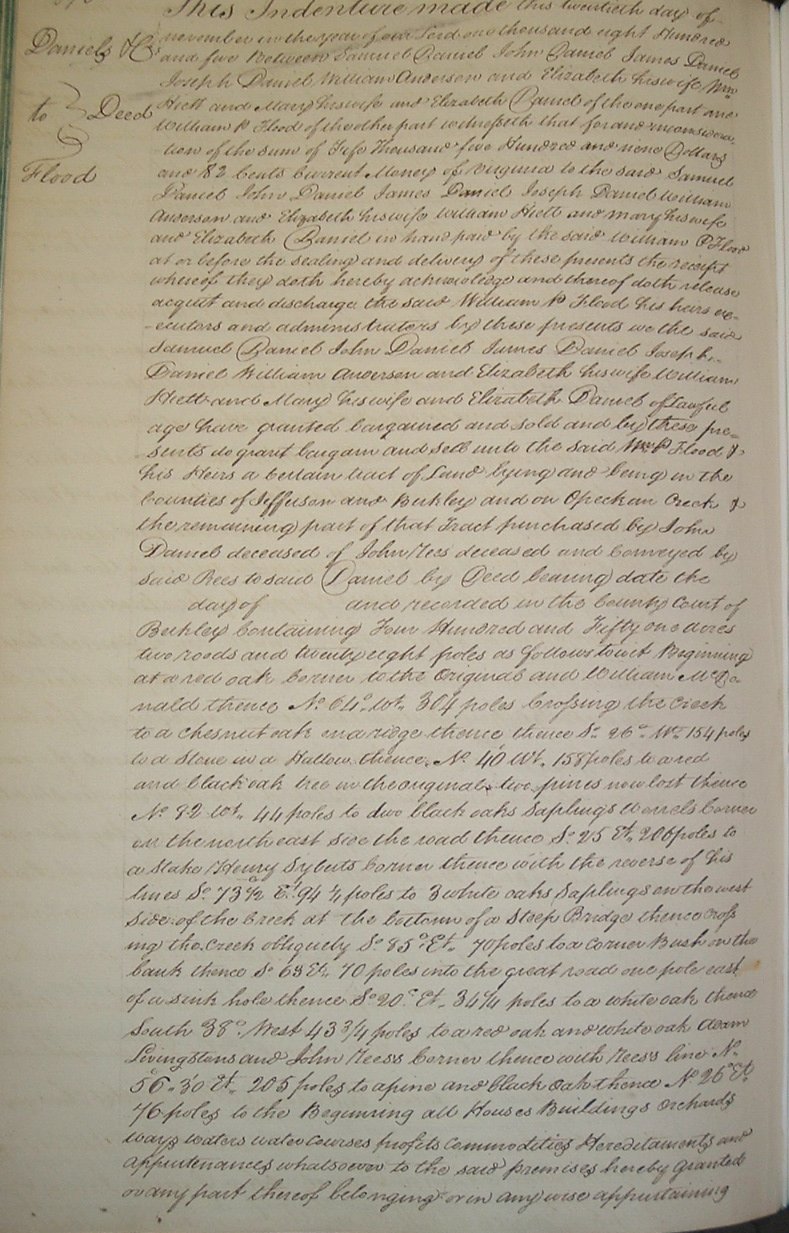 Daniels &Cs
to } Deed
Flood
This Indenture made this twentieth day of
november in the year of our Lord one thousand eight Hundred
and five Between Samuel Daniel John Daniel James Daniel
Joseph Daniel William Anderson and Elizabeth his wife Wm
Hiett and Mary his wife and Elizabeth Daniel of the one part and
William P Flood of the other part witnesseth that for and in considera
tion of the sum of Five Thousand five Hundred and nine Dollars
and 82 Cents Current Money of Virginia to the said Samuel
Daniel John Daniel James Daniel Joseph Daniel William
Anderson and Elizabeth his wife William Hiett and Mary his wife
and Elizabeth Daniel in hand paid by the said William P Flood
at or before the sealing and delivery of these presents the receipt
whereof they doth hereby acknowledge and thereof doth release
acquit and discharge the said William P Flood his heirs ex-
-ecutors and administrators by these presents we the said
Samuel Daniel John Daniel James Daniel Joseph
Daniel William Anderson and Elizabeth his wife William
Hiett and Mary his wife and Elizabeth Daniel of lawful
age have granted bargained and sold and by these pre=
sents do grant bargain and sell unto the said Wm P Flood &
his Heirs a certain tract of Land lying and being in the
Counties of Jefferson and Berkley and on Opeckan Creek &
the remaining part of that Tract purchased by John
Daniel deceased of John Rees deceased and Conveyed by
said Rees to said Daniel by Deed bearing date the
day of and recorded in the County Court of
Berkley Containing Four Hundred and Fifty one acres
two roods and twenty eight poles as follows to wit Beginning
at a red oak Corner to the Original and William McDo
nald thence No 64o Wt. 304 poles Crossing the Creek
to a chesnut oak on a ridge thence thence So 26o Wt 154 poles
to a Stone in a Hallow thence No 40 Wt. 158 poles to a red
and black oak tree in the original two pines now lost thence
No 82 Wt. 44 poles to two black oaks Saplings Worrels Corner
on the north east side the road thence So 25 Et. 206 poles to
a Stake Henry Sybuts Corner thence with the reverse of his
lines So 73 1/2 Et 94 1/4 poles to 3 white oaks Saplings on the west
side of the Creek at the bottom of a Steep Bridge thence Cross
ing the Creek obliquely So 85o Et. 70 poles to a Corner Bush on the
bank thence So 69 Et. 70 poles into the great road one pole east
of a sink hole thence So 20o Et. 34 1/4 poles to a white oak thence
South 38o West 43 3/4 poles to a red oak and white oak Adam
Livingstons and John Rees's Corner thence with Rees's line No
56o 30 Et. 205 poles to a pine and black oak thence No 26o Et.
76 poles to the Beginning all Houses Buildings orchards
ways waters water Courses profits Commodities Hereditaments and
appurtenances whatsoever to the said premises hereby granted
or any part thereof belonging or in any wise appurtaining